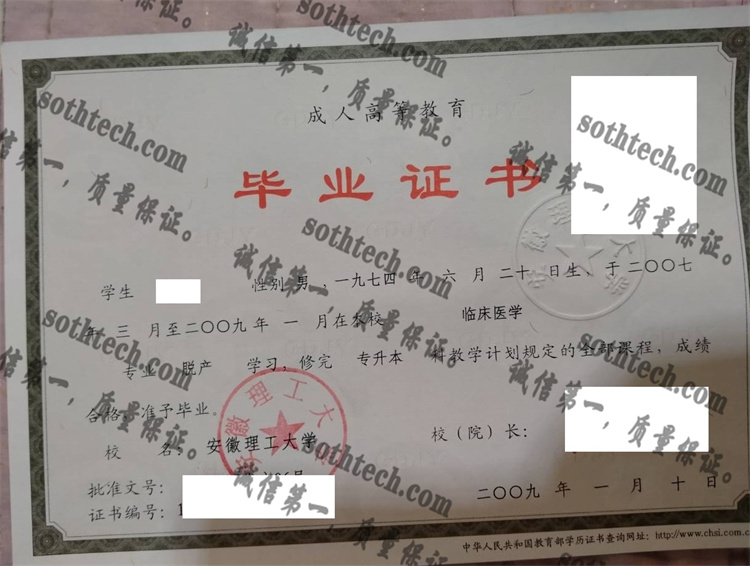 成人高等教育
毕业证书
学生 性别 男 ,一九七四 年 六 月 二十 日生、于 二〇〇七
年 三 月至二〇〇九年 一 月在本校 临床医学
专业 脱产 学习,修完 专升本 科教学计划规定的全部课程,成绩
合格,准予毕业。
校 名: 安徽理工大学 校(院)长:
批准文号:
证书编号:1
二〇〇九 年 一 月 十 日
中华人民共和国教育部学历证书查询网址:http://www.chsi.com.c
安徽理工大学
安徽理工大学
sothtech.com
诚信第一,质量保证。
sothtech.com
诚信第一,质量保证。
sothtech.com
诚信第一,质量保证。
sothtech.com
诚信第一,质量保证。
sothtech.com
诚信第一,质量保证。
sothtech.com
诚信第一,质量保证。
sothtech.com
诚信第一,质量保证。
sothtech.com
诚信第一,质量保证。